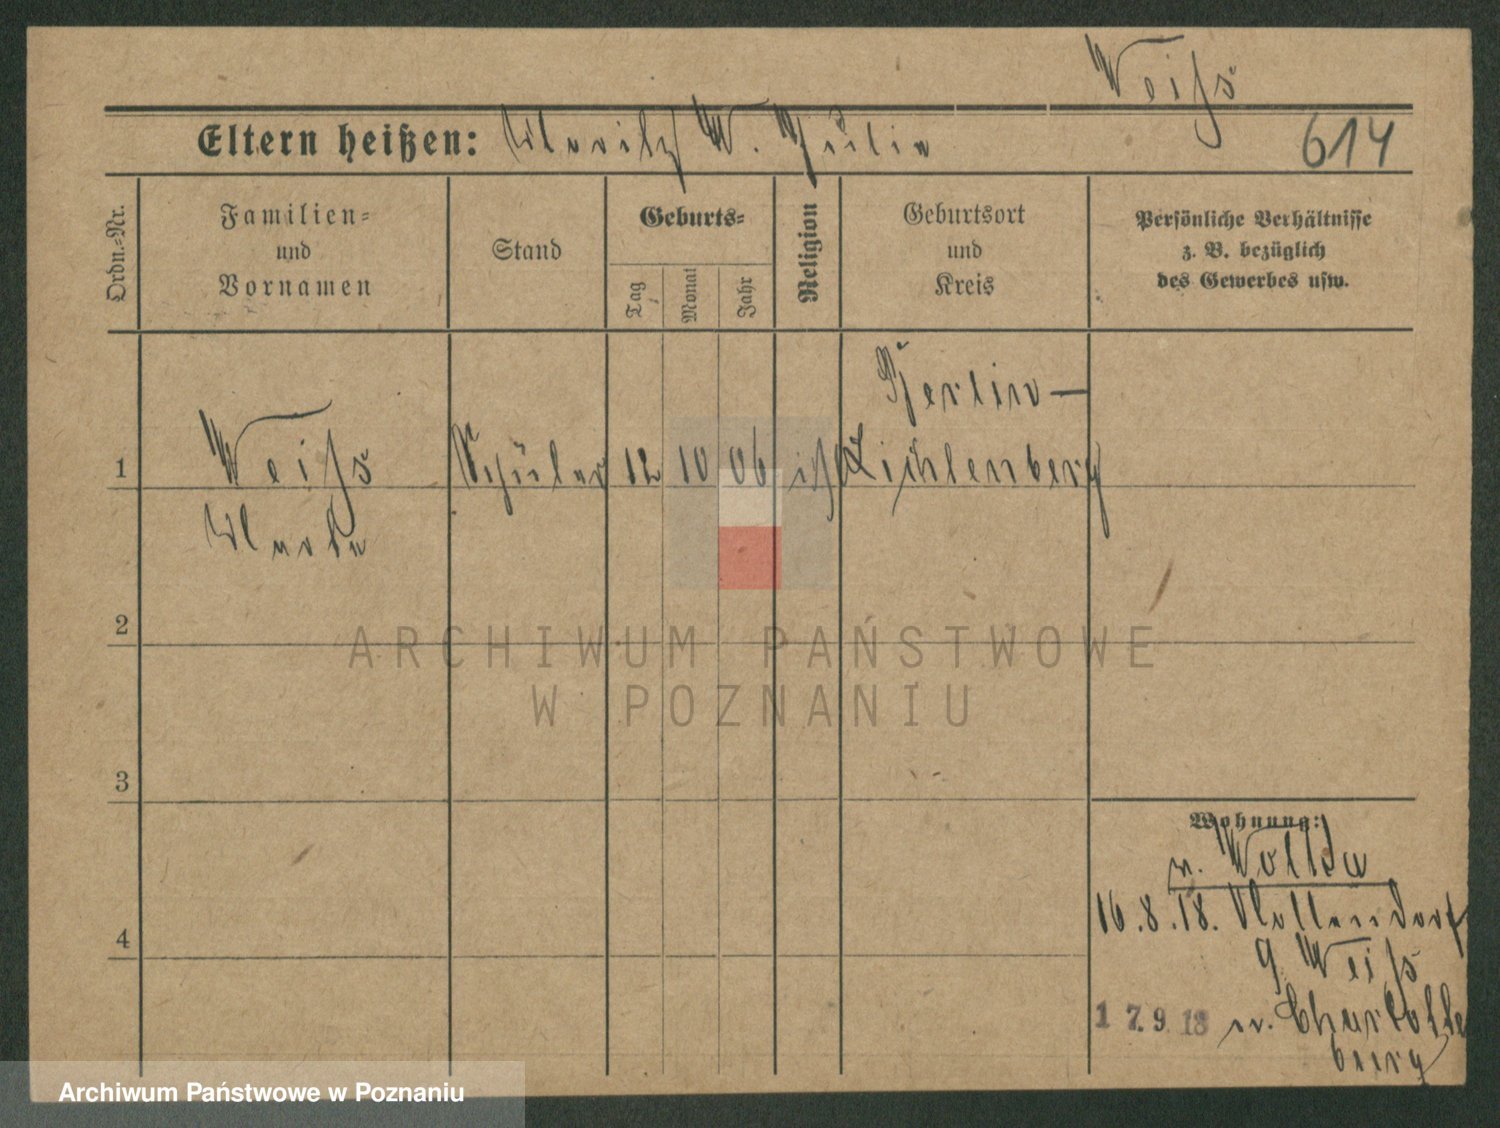 Weiſs
Eltern heißen: Moritz W. Julia
614
Ordn.-Nr.
Familien-
und
Vornamen
Stand
Geburts-
Tag
Monat
Jahr
Religion
Geburtsort
und
Kreis
Persönliche Verhältnisse
z. B. bezüglich
des Gewerbes usw.
Berlin-
1 Weiſs Schüler 12 10 06 Lichtenberg
2
3
4
Wohnung:
v. Wollda
16.8.18.
Weiſs
17.9.18 n. Charlotten
burg
ARCHIWUM PAŃSTWOWE
W POZNANIU
Archiwum Państwowe w Poznaniu